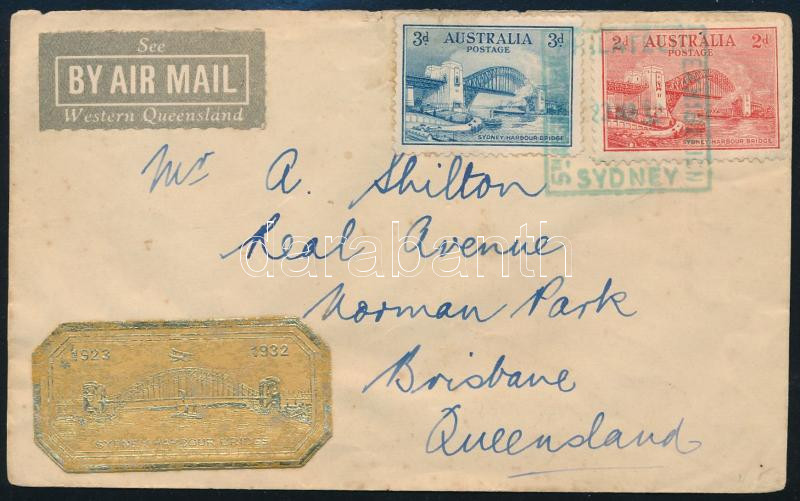 See
BY AIR MAIL
Western Queensland
3d AUSTRALIA 3d
POSTAGE
SYDNEY HARBOUR BRIDGE
2d AUSTRALIA 2d
POSTAGE
SYDNEY HARBOUR BRIDGE
SYDNEY
Mr A. Shilton
Real Avenue
Norman Park
Brisbane
Queensland
darabanth
1923 1932
SYDNEY HARBOUR BRIDGE